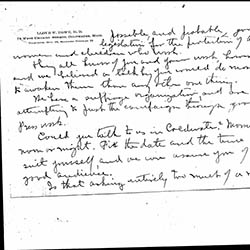 possible and probable
legislation for the protection of
women and children who work.
They all know you and your work
and we believe a talk by you would do more
to awaken them than any other one thing.
We have a suffrage organization and are
attempting to just the campaign through
Press work.
Could you talk to us in Coldwater? Morning
noon or night. Fix the date and the time
suit yourself and we can assure you of
good audience.
Is that asking entirely too much of a